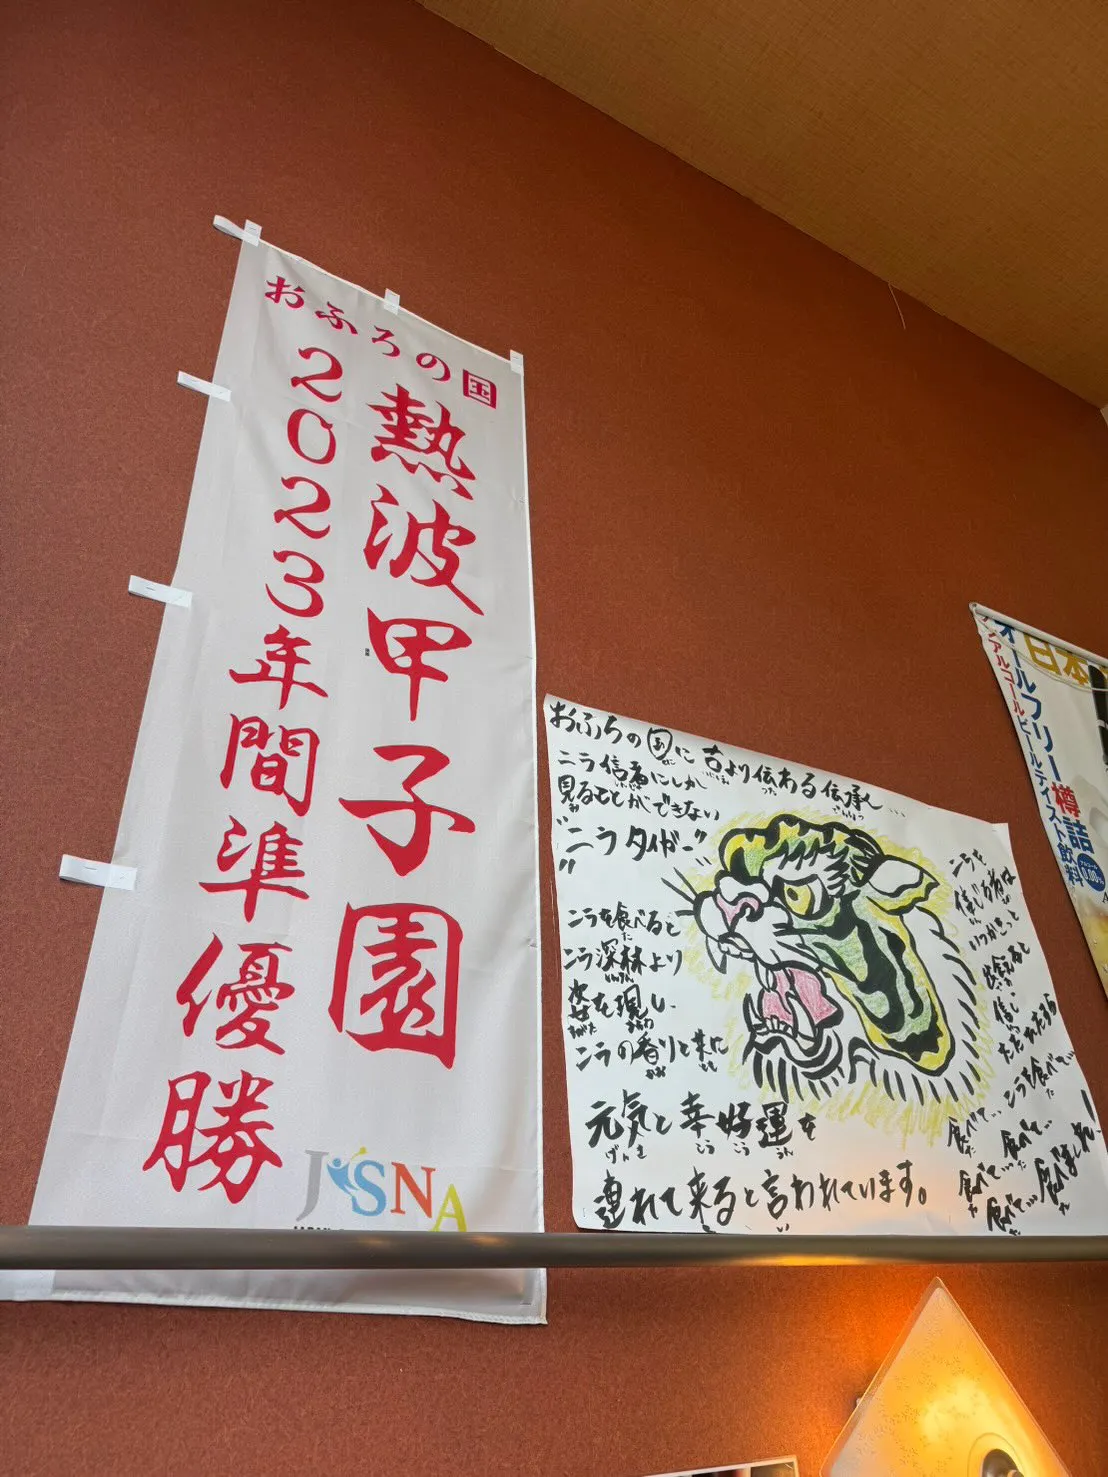 おふろの国
熱波甲子園
2023年間準優勝
JSNA
おふろの国に古より伝わる伝承…
ニラ信者にしか
見ることができない
"ニラタイガー"
ニラを食べると
ニラ深林より
姿を現し
ニラの香りと共に
元気と幸好運を
連れて来ると言われています。
ニラを
信じる者は
いつかきっと
信じ
ただひたすら
ニラを食べて…
食べて…食べて…
食べて…食べて…
食べました!
日本
オールフリー樽詰
ノンアルコールビールテイスト飲料
0.00%